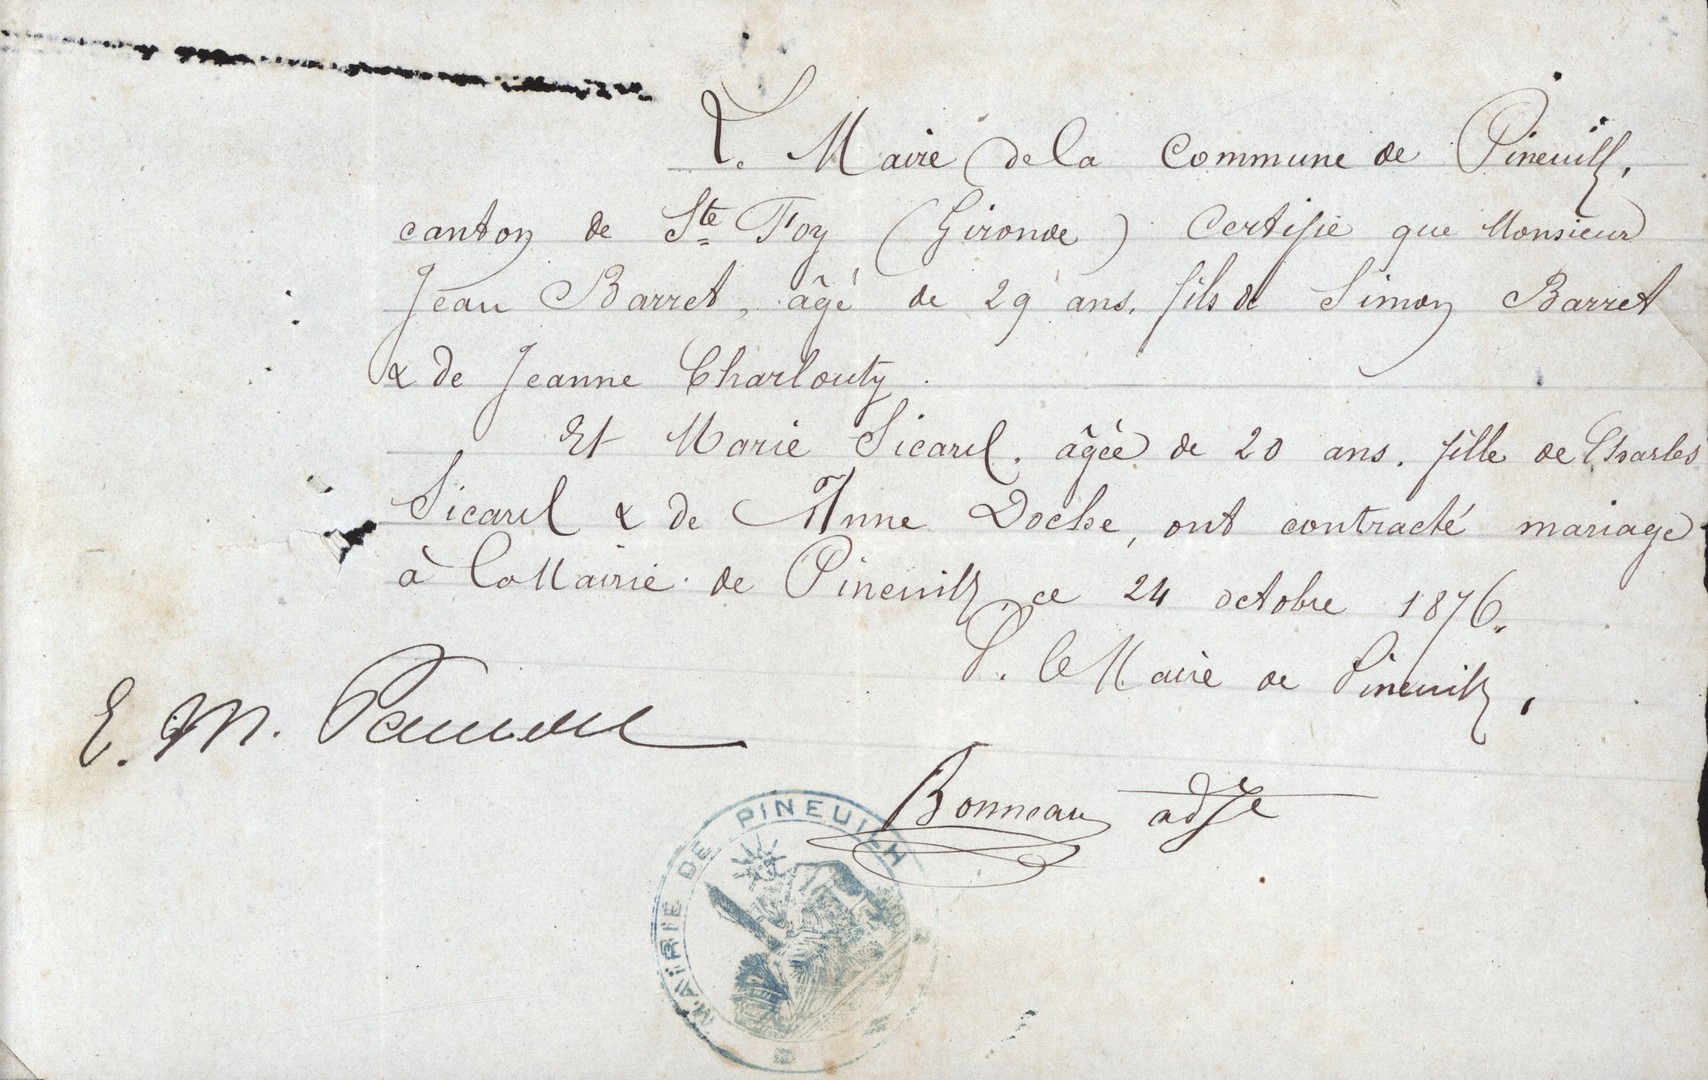 Le Maire de la Commune de Pineuilh,
canton de Ste Foy (Gironde) Certifie que Monsieur
Jean Barret, âgé de 29 ans, fils de Simon Barret
& de Jeanne Charlouty.
Et Marie Sicard, âgée de 20 ans, fille de Charles
Sicard & de Anne Doche, ont contracté mariage
à la Mairie de Pineuilh ce 24 octobre 1876.
P. le Maire de Pineuilh,
E. M.
Bonneau adjt
MAIRIE DE PINEUILH